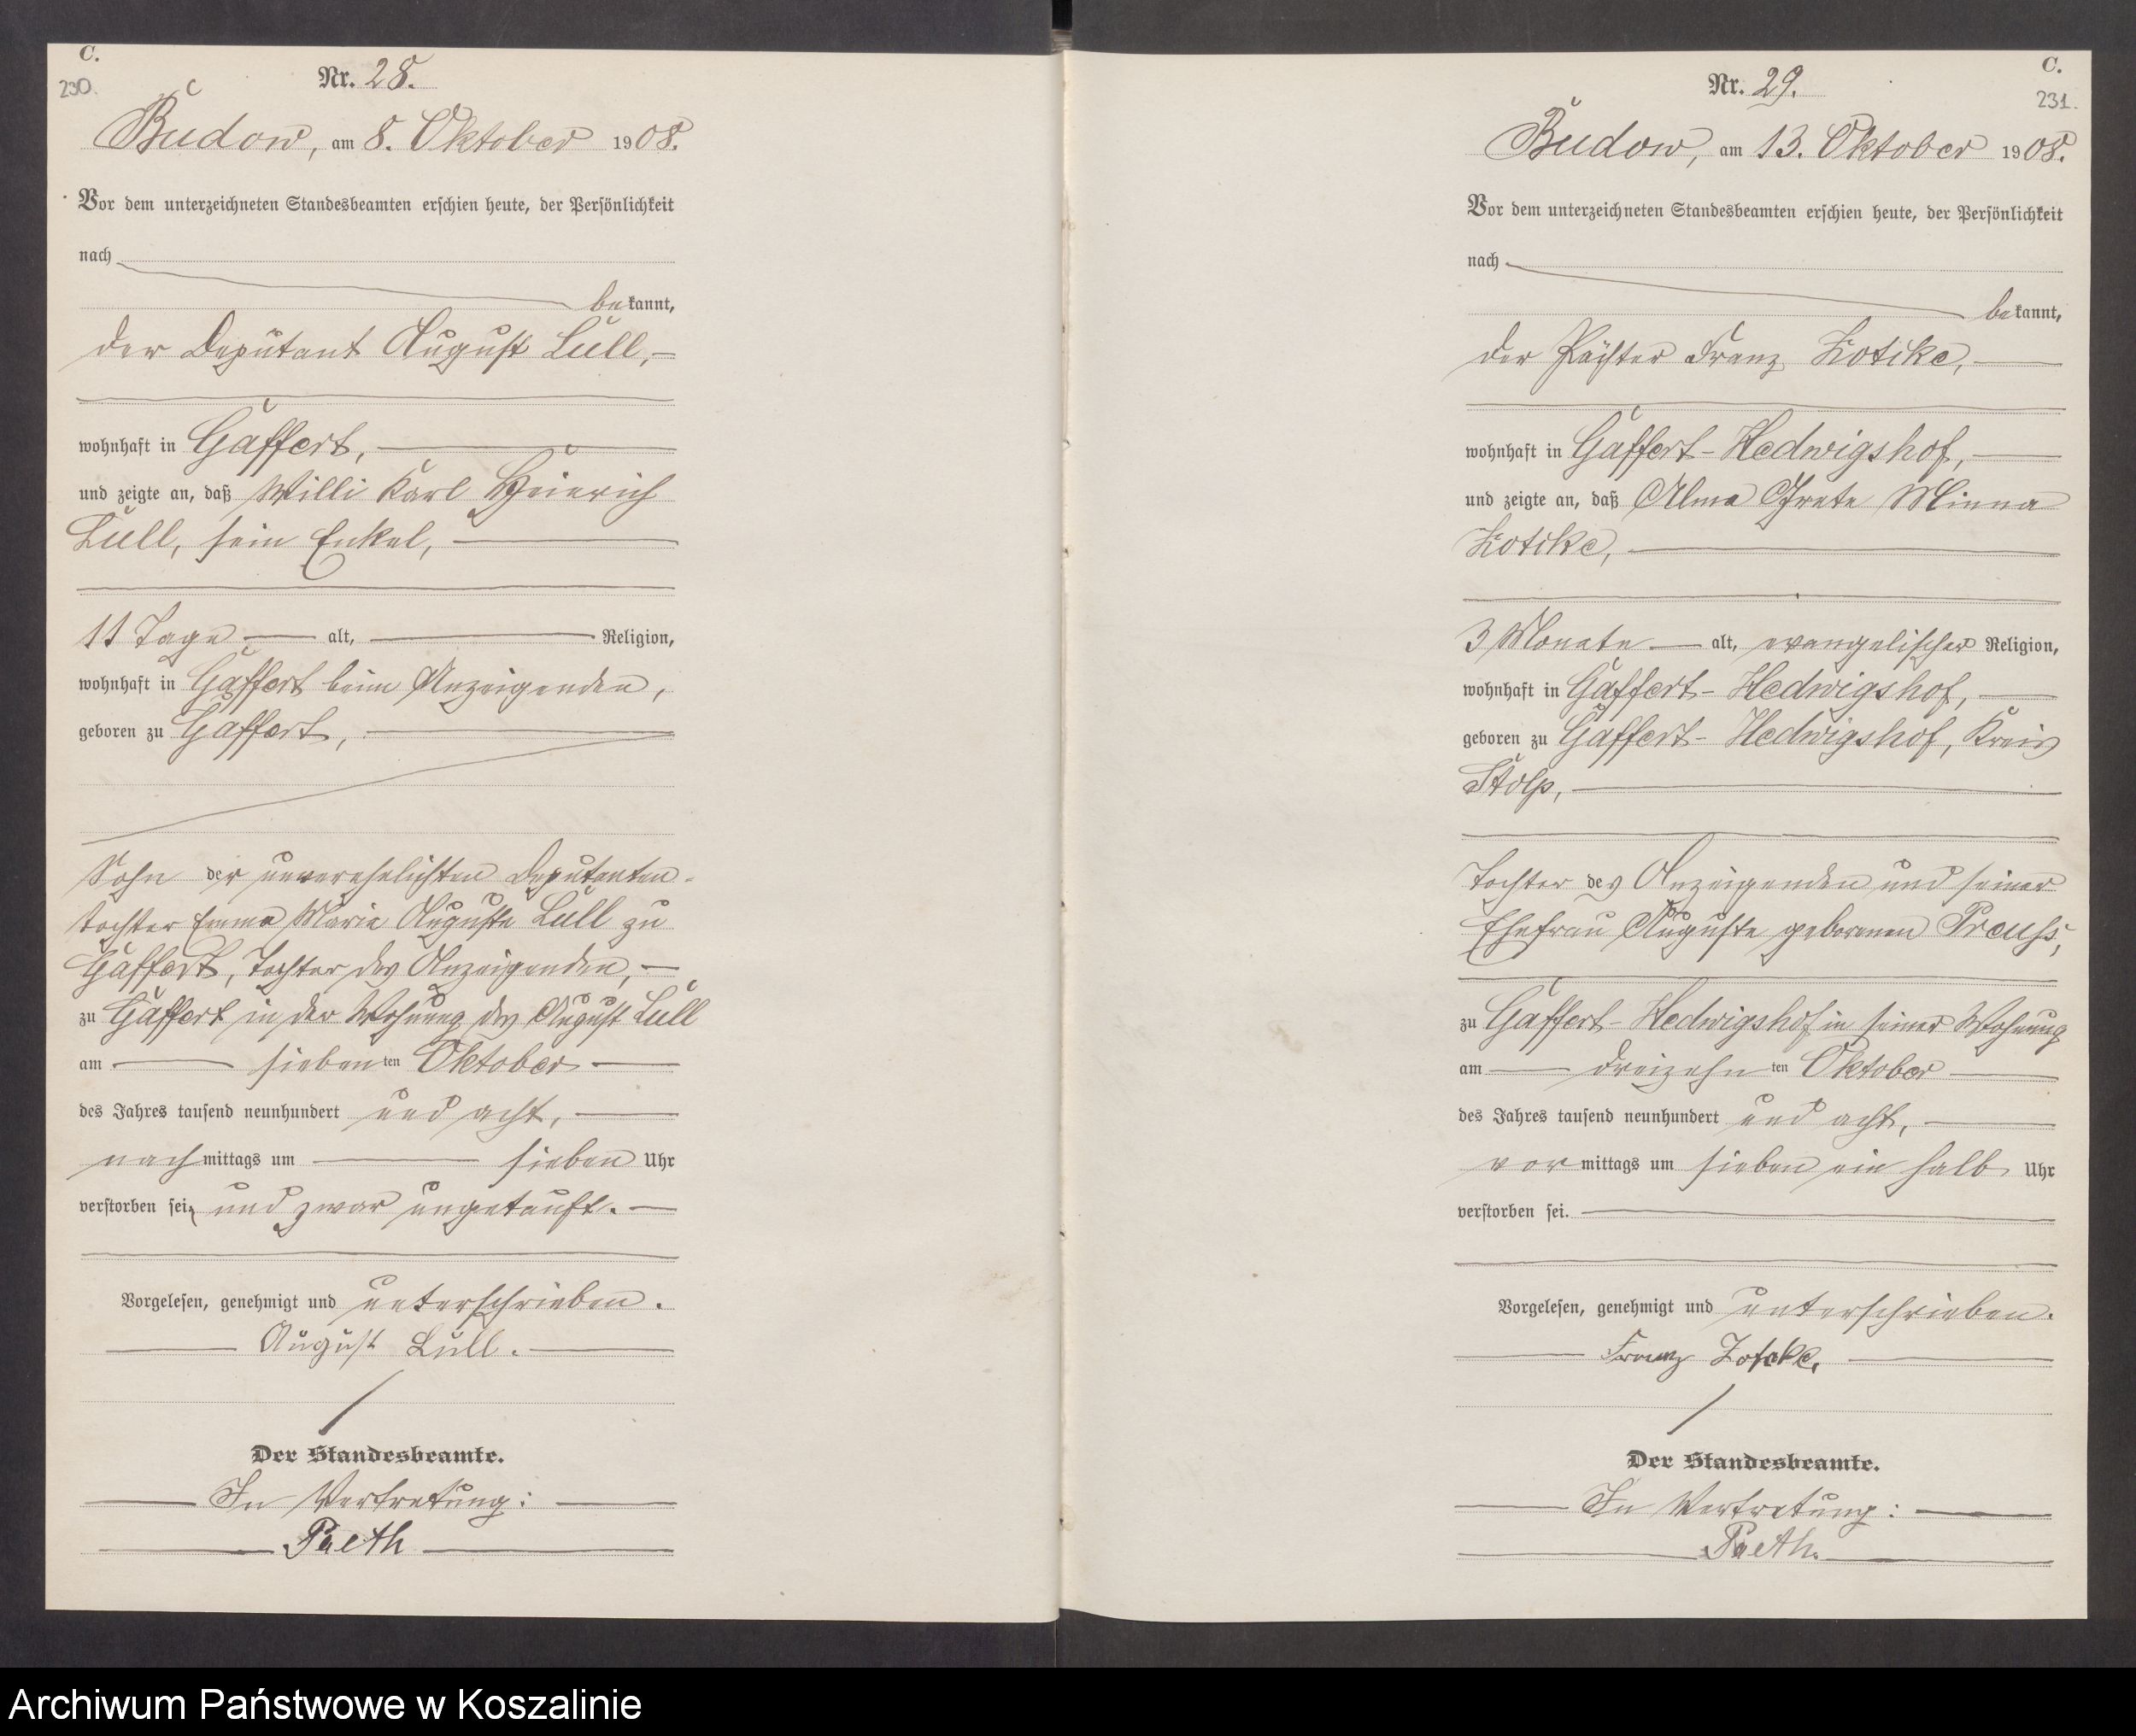 C.
230.
Nr. 28.
Budow, am 8. Oktober 1908.
Vor dem unterzeichneten Standesbeamten erschien heute, der Persönlichkeit
nach
bekannt,
der Deputant August Lüll,
wohnhaft in Gaffert,
und zeigte an, daß Willi Karl Heinrich
Lüll, sein Enkel,
11 Tage alt, Religion,
wohnhaft in Gaffert beim Anzeigenden,
geboren zu Gaffert,
Sohn der unverehelichten Deputanten-
tochter Emma Marie Auguste Lüll zu
Gaffert, Tochter des Anzeigenden,
zu Gaffert in der Wohnung des August Lüll
am siebenten Oktober
des Jahres tausend neunhundert und acht,
nachmittags um sieben Uhr
verstorben sei, und zwar ungetauft.
Vorgelesen, genehmigt und unterschrieben.
August Lüll.
Der Standesbeamte.
In Vertretung:
Paeth
C.
231.
Nr. 29.
Budow, am 13. Oktober 1908.
Vor dem unterzeichneten Standesbeamten erschien heute, der Persönlichkeit
nach
bekannt,
der Pächter Franz
wohnhaft in Gaffert-Hedwigshof,
und zeigte an, daß Alma Grete Minna
3 Monate alt, evangelischer Religion,
wohnhaft in Gaffert-Hedwigshof,
geboren zu Gaffert-Hedwigshof, Kreis
Stolp,
Tochter des Anzeigenden und seiner
Ehefrau Auguste geborenen Preuß,
zu Gaffert-Hedwigshof in seiner Wohnung
am dreizehnten Oktober
des Jahres tausend neunhundert und acht,
vormittags um sieben ein halb Uhr
verstorben sei.
Vorgelesen, genehmigt und unterschrieben.
Franz
Der Standesbeamte.
In Vertretung:
Paeth.
Archiwum Państwowe w Koszalinie